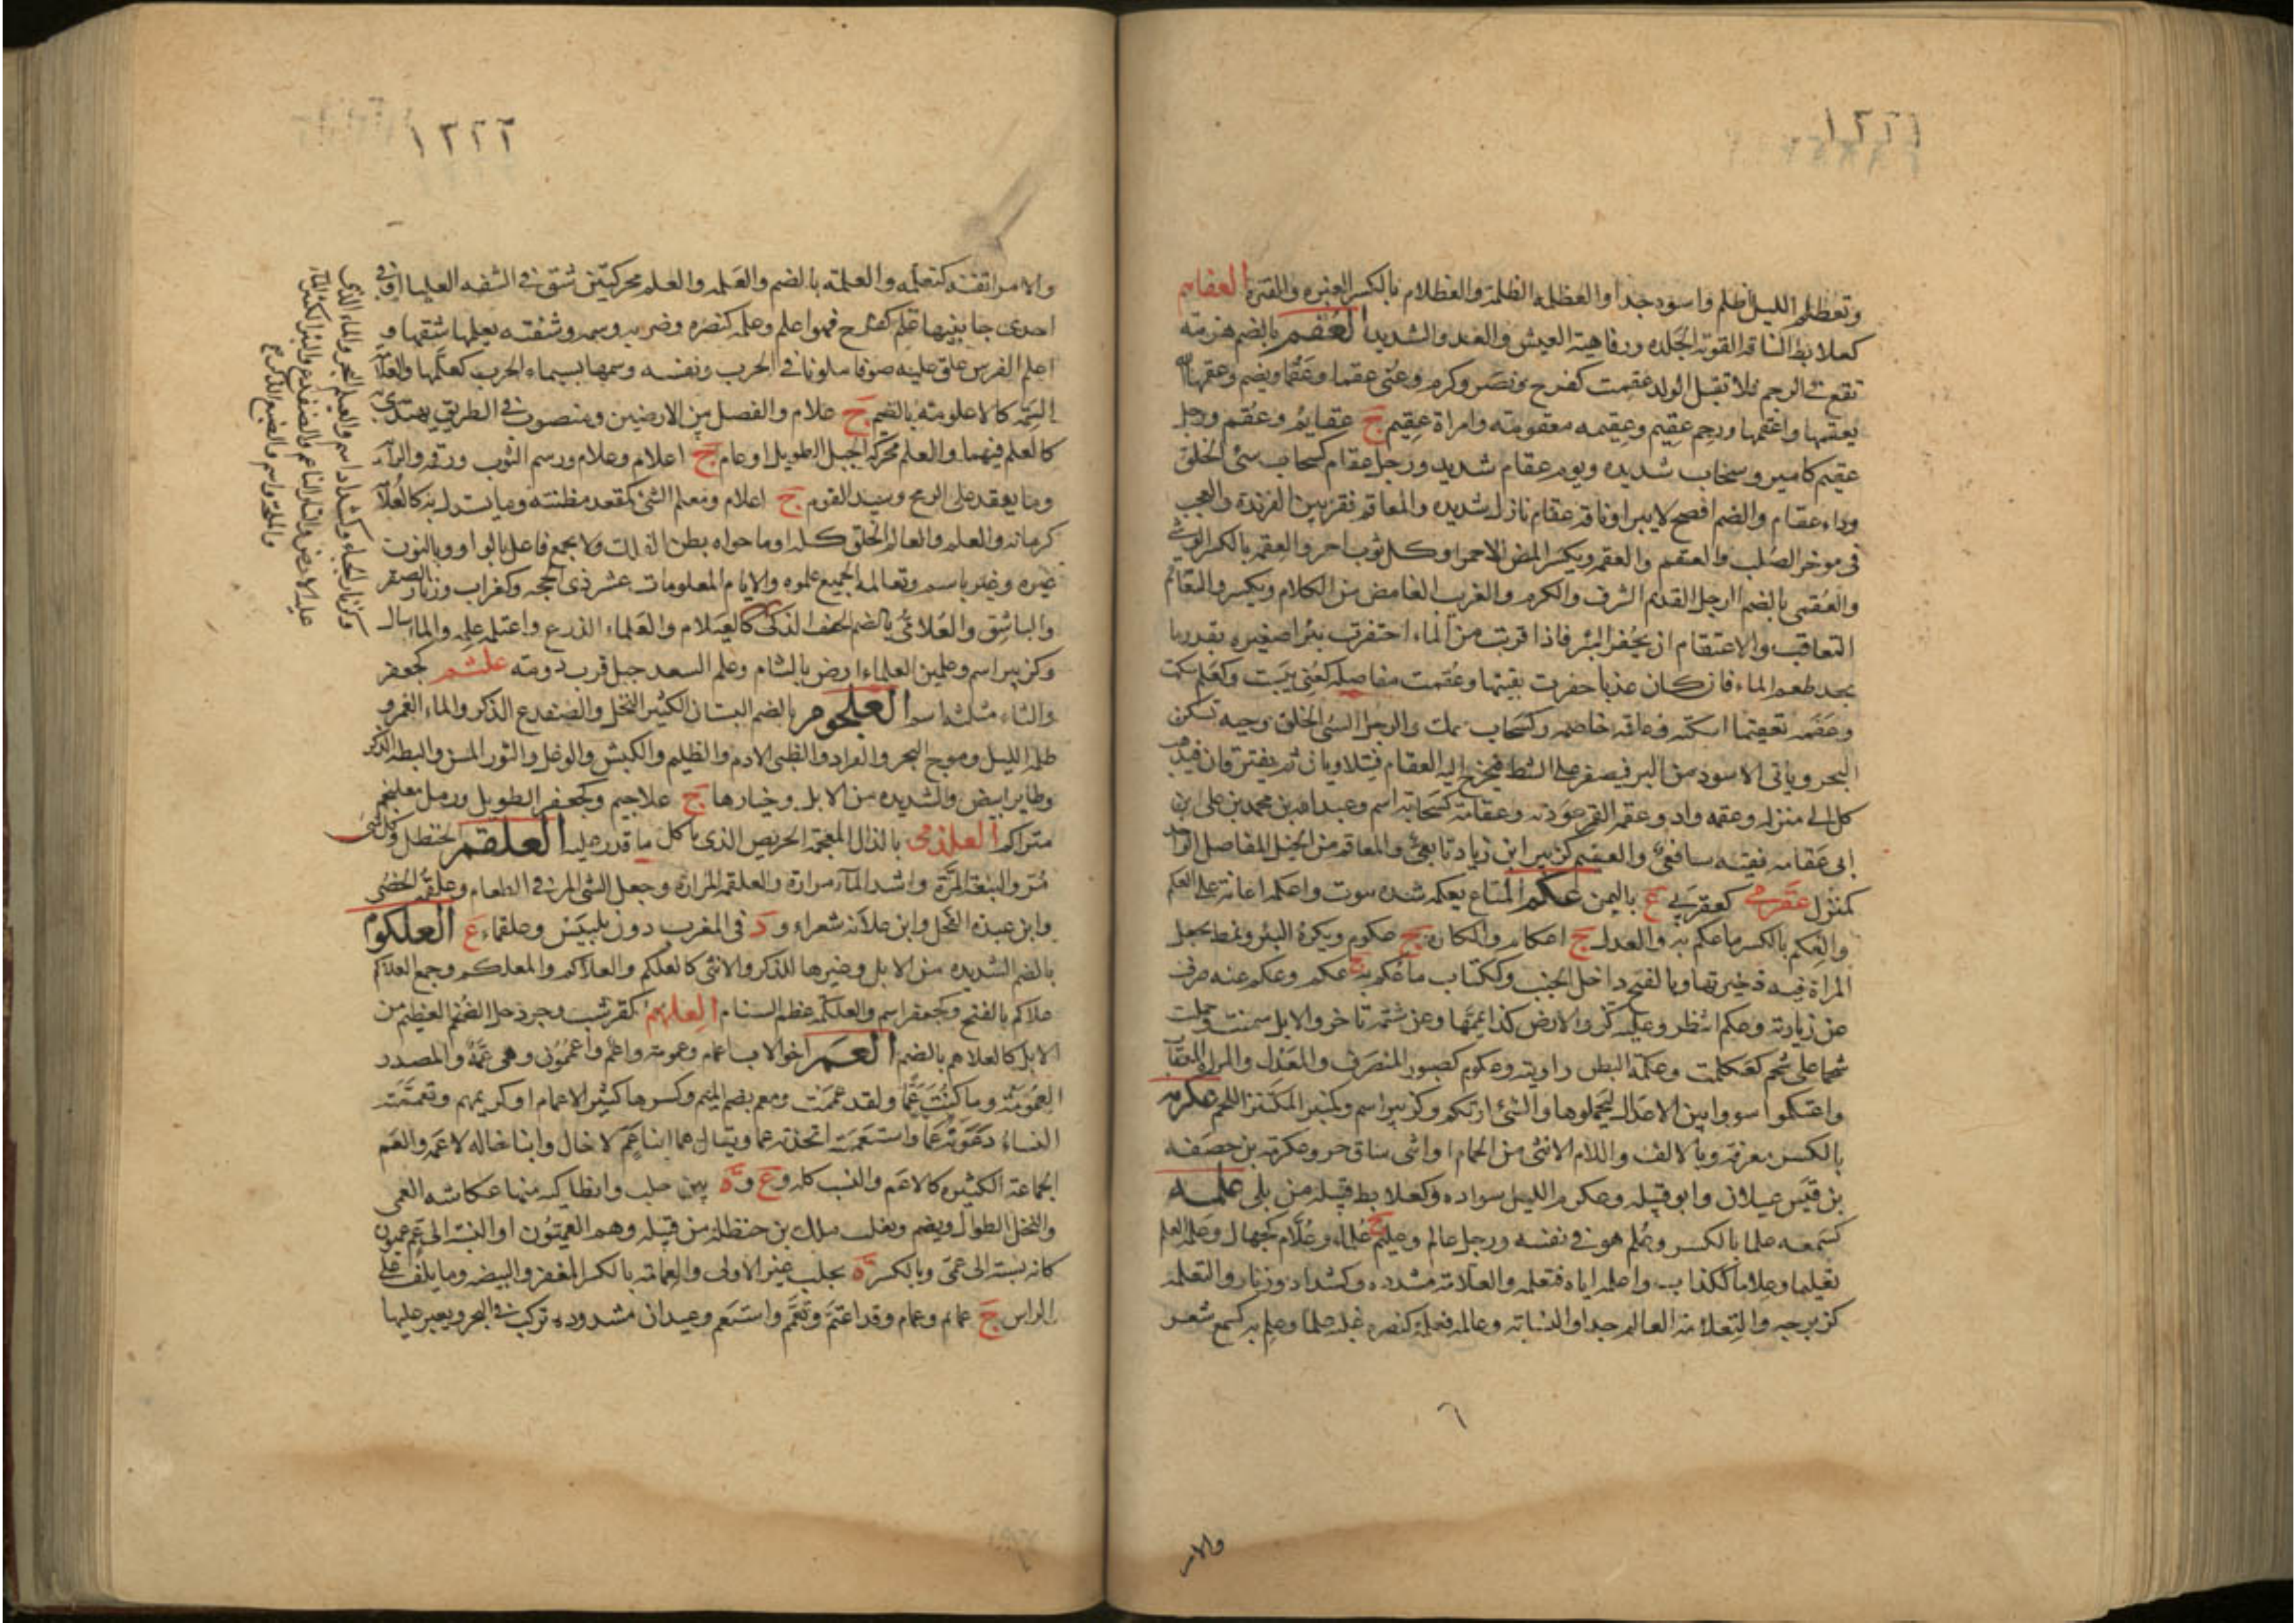 ١٢٢١
وتعظلم الليل اظلم واسود جدا والعظلمه الظلمة والعظلام بالكسر الغبره والقترة العقاهم
كعلابط الناقه القويه الجلده ورفاهية العيش والغد والشديد العقم بالضم هزمه
تقع في الرحم فلا تقبل الولد عقمت كفرح ونصر وكرم وعنى عقما وعقما ويضم وعقمها الله
يعقمها واعقمها ورحم عقيم وعقيمه معقومه وامراة عقيم ج عقايم وعقم ورجل
عقيم كامير وسحاب شديده ويوم عقام شديد ورجل عقام كسحاب سئ الخلق
وداء عقام والضم افصح لا يبرا وناقه عقام نازل شديده والمعاقم فقر بين الفريدة والعجب
في موخر الصلب والعقم والعقمه ويكسر المرط الاحمر او كل ثوب احمر والعقمه بالكسر الوشى
والعقمى بالضم الرجل القديم الشرف والكرم والغريب الغامض من الكلام ويكسر والتعاقم
التعاقب والاعتقام ان يحفر البئر فاذا قربت من الماء احتفرت بئرا صغيره بقدر ما
يجد طعم الماء فان كان عذبا حفرت بقيتها وعقمت مفاصله كعنى يبست وكعلم سكت
وعقمه تعقيما اسكته وعاقمه خاصمه وكسحاب سمك والرجل السئ الخلق وحيه تسكن
البحر وياتى الاسود من البر فيصفر على الشط فيخرج اليه العقام فيتلاويان ثم يفترقان فيذهب
كل الى منزله وعقمه واد وعقمه القمر عودته وعقامة كسحابة اسم وعبد الله بن محمد بن على ابن
ابى عقامه فقيه شافعى والعقيم كزبير ابن زياد تابعى والمعاقم من الخيل المفاصل الواحد
كمنزل عقرمى كعقربى ع باليمن عكم المتاع يعكمه شده بثوب واعكمه اعانه على العكم
والعكم بالكسر ما عكم به والعدل ج اعكام والكاره ج عكوم وبكرة البئر ونمط تجعل
المراة فيه ذخيرتها وبالفتح داخل الجنب وككتاب ما عكم به ج عكم وعكم عنه صرف
عن زيارته وعكم انتظر وعليه كر والارض كذا عممها وعن شتمه تاخر والابل سمنت وحملت
شحما على شحم كعكمت وعكمة البطن زاويته وعكوم كصبور المنصرف والمعدل والمراة المعقاب
واعتكموا سووا بين الاعدال ليحملوها والشئ ارتكم وكزبير اسم وكمنبر المكتنز اللحم عكرمه
بالكسر معرفة وبالالف واللام الانثى من الحمام او انثى ساق حر وعكرمه بن خصفه
بن قيس عيلان وابو قبيله وعكرم الليل سواده وكعلابط قبيله من بلى علمه
كسمعه علما بالكسر وعلم هو في نفسه ورجل عالم وعليم ج علماء وعلام كجهال وعلمه العلم
تعليما وعلاما ككذاب واعلمه اياه فتعلمه والعلامه مشدده وكشداد وزنار والتعلمه
كزبرجه والتعلامه العالم جدا والنسابه وعالمه فعلمه كنصره غلبه علما وعلم به كسمع شعر
والامر
١٢٢٢
والامر اتقنه كتعلمه والعلمه بالضم والعلمه والعلم محركتين شق في الشفه العليا او في
احدى جانبيها علم كفرح فهو اعلم وعلمه كنصره وضربه وسمه وشفته يعلمها شقها و
اعلم الفرس علق عليه صوفا ملونا في الحرب ونفسه وسمها بسيماء الحرب كعلمها والعلامه
السمه كالاعلومه بالضم ج علام والفصل بين الارضين ومنصوب في الطريق يهتدى به
كالعلم فيهما والعلم محركه الجبل الطويل او عام ج اعلام وعلام ورسم الثوب ورقمه والرايه
وما يعقد على الرمح وسيد القوم ج اعلام ومعلم الشئ كمقعد مظنته وما يستدل به كالعلامه
كرمانه والعلم والعالم الخلق كله او ما حواه بطن الفلك ولا يجمع فاعل بالواو وبالنون
غيره وغير ياسم وتعالمه الجميع علموه والايام المعلومات عشر ذى الحجه وكغراب وزنار الصقر
والباشق والعلامى بالضم الخفيف الذكى كالعيلام والعلماء الدرع واعتلمه علمه والماء سال
وكزبير اسم وعلمين العلماء ارض بالشام وعلم السعد جبل قرب دومه علثم كجعفر
والثاء مثلثه اسم العلجوم بالضم البستان الكثير النخل والضفدع الذكر والماء الغمر و
ظلمة الليل وموج البحر والقراد والظبى الادم والظليم والكبش والوعل والثور المسن والبطه الذكر
وطاير ابيض والشديده من الابل وخيارها ج علاجيم وكجعفر الطويل ورمل معلنجم
متراكم العلذمى بالذال المعجمة الحريص الذى ياكل ما قدر عليه العلقم الحنظل وكل شئ
مر والنبقة المرة واشد الماء مرارة والعلقمه المرارة وجعل الشئ المر في الطعام وعلقمه الخصى
وابن عبده الفحل وابن علاثه شعراء و د في المغرب دون بلبيس وعلقماء ع العلكوم
بالضم الشديده من الابل وغيرها للذكر والانثى كالعلكم والعلاكم والمعلكم وجمع العلاكم
علاكم بالفتح وكجعفر اسم والعلكمه عظم السنام العلهم كقرشب وجردحل الضخم العظيم من
الابل كالعلاهم بالضم العم اخو الاب اعمام وعمومة واعم واعممون وهى عمة والمصدر
العمومة وما كنت عما ولقد عممت ومعم بضم الميم وكسرها كثير الاعمام او كريمهم وتعممته
النساء دعوته عما واستعممته اتخذته عما ويقال هما ابنا عم لا خال وابنا خاله لا عمه والعم
الجماعة الكثيره كالاعم والعشب كله و ع و ة بين حلب وانطاكيه منها عكاشه العمى
والنخل الطوال ويضم ولقب ملك بن حنظله من قبيله وهم العميون او النسبه الى عم عميون
كانه نسبة الى عمى وبالكسر ة بحلب غير الاولى والعمامة بالكسر المغفر والبيضه وما يلف على
الراس ج عمايم وعمام وقد اعتم وتعمم واستعم وعيدان مشدوده تركب في البحر ويعبر عليها
وكزنار الحناء وكشداد اسم والعيلم البحر والماء الذى
عليه الارض والتار الناعم والضفدع والبئر الكثيره الماء
والملحه واسم والضبع الذكر